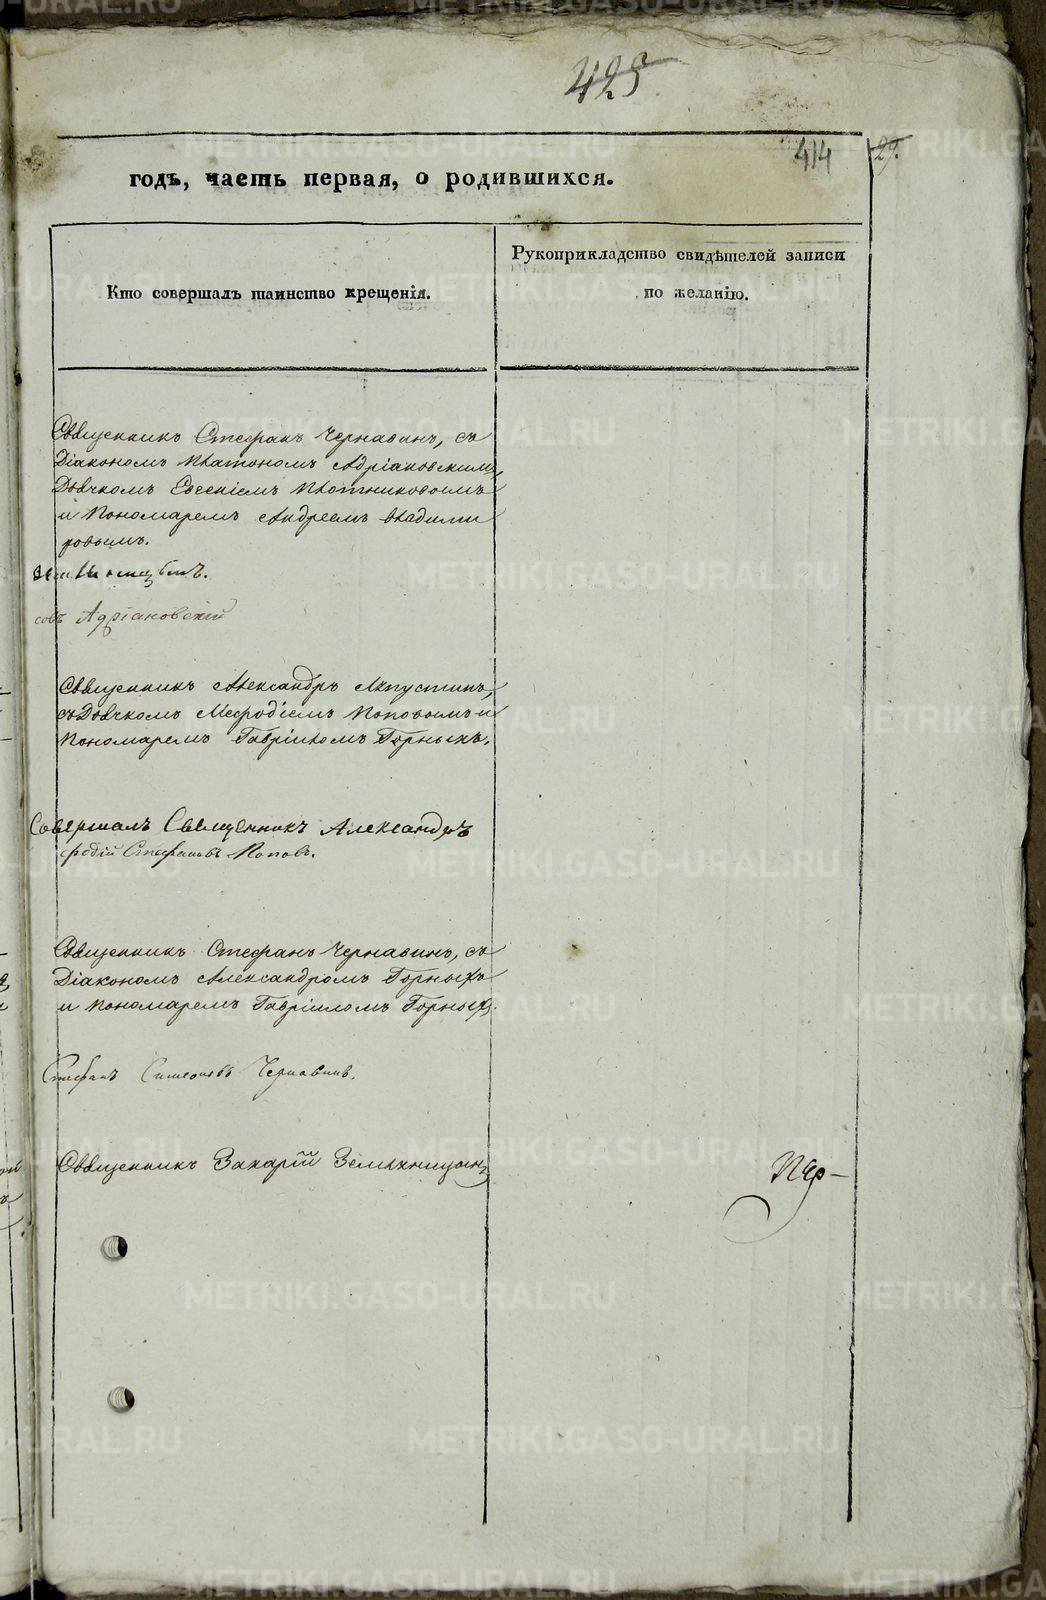 425
414
29.
годъ, часть первая, о родившихся.
Кто совершалъ таинство крещенія.
Рукоприкладство свидѣтелей записи
по желанію.
Священникъ Стефанъ Чернавинъ, съ
Діакономъ Платономъ Адріановскимъ,
Дьячкомъ Евгеніемъ Плотниковымъ
и Пономаремъ Андреемъ Владими
ровымъ.
совъ Адріановскій
Священникъ Александръ Лепустинъ,
съ Дьячкомъ Мефодіемъ Поповымъ и
Пономаремъ Гавріиломъ Горныхъ.
Совершалъ Священникъ Александръ
фодій Стефановъ Поповъ.
Священникъ Стефанъ Чернавинъ, съ
Діакономъ Александромъ Горныхъ
и Пономаремъ Гавріиломъ Горныхъ.
Стефанъ Симеоновъ Чернавинъ.
Священникъ Захарій Земляницынъ
METRIKI.GASO-URAL.RU